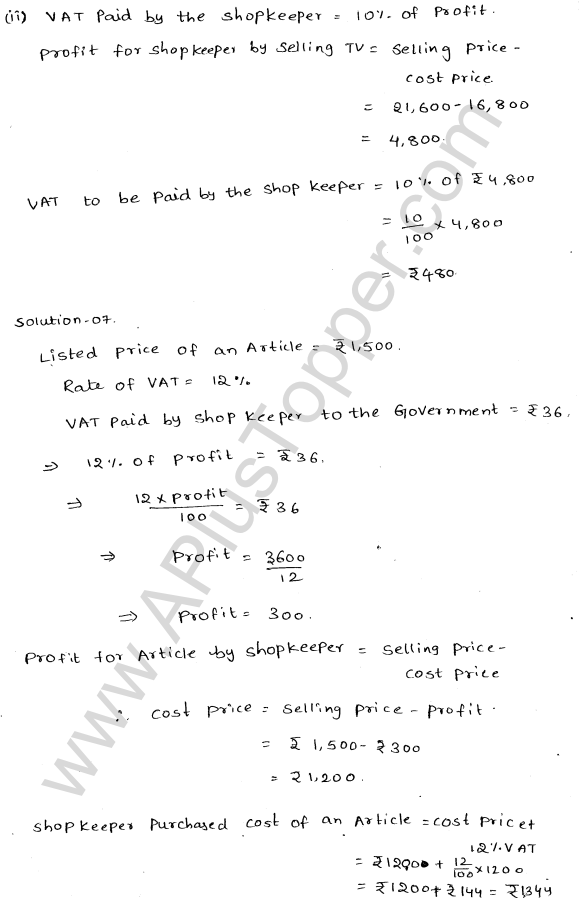 (ii) VAT Paid by the shopkeeper = 10% of Profit.
Profit for shopkeeper by selling TV = Selling Price -
cost price.
= 21,600 - 16,800
= 4,800.
VAT to be Paid by the shop keeper = 10% of ₹4,800
= 10/100 × 4,800
= ₹480.
Solution-07.
Listed Price of an Article = ₹1,500.
Rate of VAT = 12%
VAT Paid by shop keeper to the Government = ₹36.
⇒ 12% of Profit = ₹36.
⇒ 12 × Profit/100 = ₹36
⇒ Profit = 3600/12
⇒ Profit = 300.
Profit for Article by shopkeeper = Selling Price -
cost price
∴ cost price = selling price - profit.
= ₹1,500 - ₹300
= ₹1,200.
Shopkeeper Purchased cost of an Article = cost price +
12% VAT
= ₹1200 + 12/100 × 1200
= ₹1200 + ₹144 = ₹1344
www.APlusTopper.com